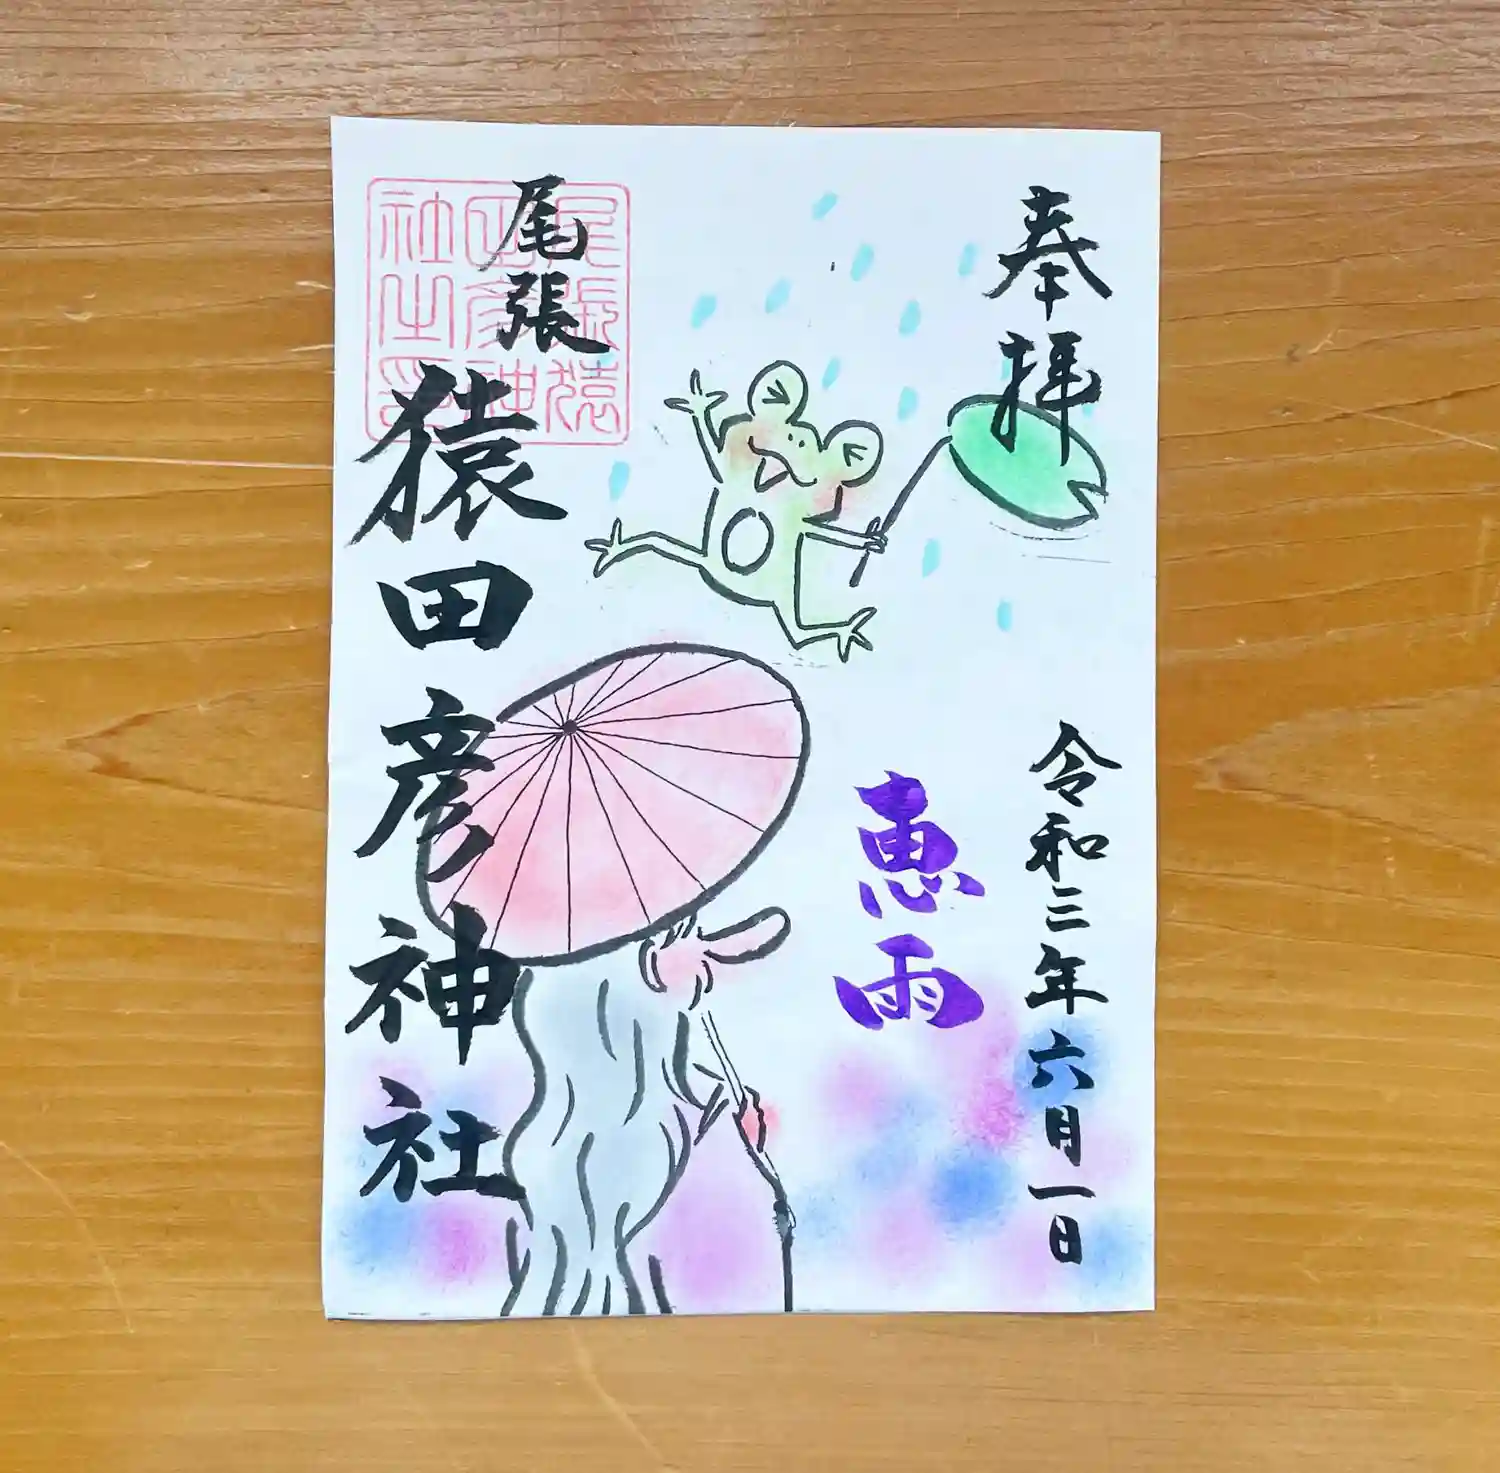 奉拝
令和三年六月一日
恵雨
尾張
猿田彦神社
尾張猿
田彦神
社之印